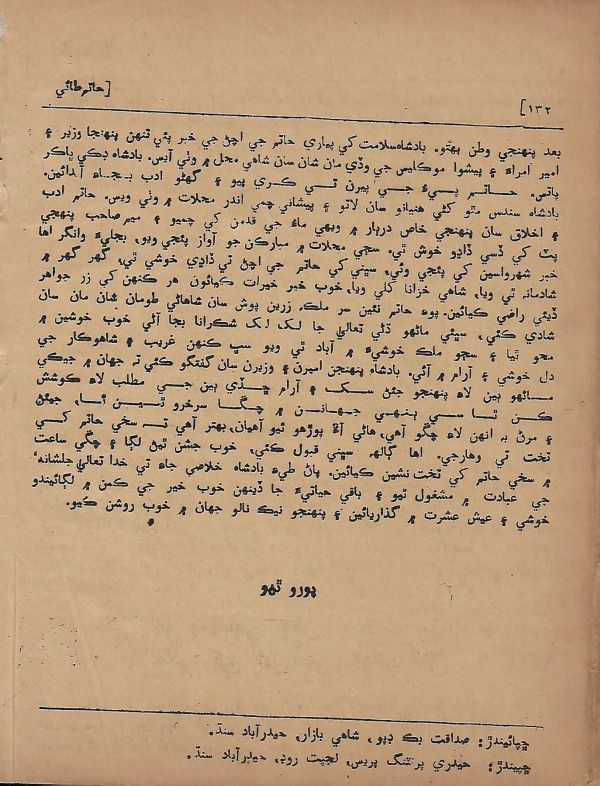 [حاتم طائي
[۱۳۲
بعد پنهنجي وطن پهتو. بادشاھ سلامت کي پياري حاتم جي اچڻ جي خبر پئي تنهن پنهنجا وزير ۽
امير امراءَ ۽ پيشوا موڪليس جي وڏي مان شان سان شاهي محل ۾ وٺي آيس. بادشاھ ڊڪي ڀاڪر
پاتس. حاتم پيءُ جي پيرن تي ڪري پيو ۽ گهڻو ادب بجاه آندائين.
بادشاھ سندس مٿو کڻي هنيانو سان لاتو ۽ پيشاني چمي اندر محلات ۾ وٺي ويس. حاتم ادب
۽ اخلاق سان پنهنجي خاص دربار ۾ ويهي ماءُ جي قدمن کي چميو ۽ مير صاحب پنهنجي
پٽ کي ڏسي ڏاڍو خوش ٿي. سڄي محلات ۾ مبارڪن جو آواز پئجي ويو، بجليءَ وانگر اها
خبر شهرواسين کي پئجي وئي، سڀني کي حاتم جي اچڻ تي ڏاڍي خوشي ٿي، گهر گهر ۾
شادمانه ٿي ويا، شاهي خزانا کلي ويا، خوب خير خيرات ڪيائون هر ڪنهن کي زر جواهر
ڏيئي راضي ڪيائين. پوءِ حاتم نئين سر ملڪ زرين پوش سان شاهاڻي طومان شان مان سان
شادي ڪئي، سڀئي ماڻهو ڌڻي تعاليٰ جا لک لک شڪرانا بجا آڻي خوب خوشين ۾
محو ٿيا ۽ سڄو ملڪ خوشيءَ ۾ آباد ٿي ويو سڀ ڪنهن غريب ۽ شاهوڪار جي
دل خوشي ۽ آرام ۾ آئي. بادشاھ پنهنجن اميرن ۽ وزيرن سان گفتگو ڪئي تہ جهان ۾ جيڪي
ماڻهو ٻين لاءِ پنهنجو جئڻ سک ۽ آرام ڇڏي ٻين جي مطلب لاءِ ڪوشش
ڪن ٿا سي ٻنهي جهانن ۾ چڱا سرخرو ٿين ٿا، جيئڻ
۽ مرڻ بہ انهن لاءِ چڱو آهي، هاڻي آءٌ پوڙهو ٿيو آهيان، بهتر آهي تہ سخي حاتم کي
تخت تي وهارجي. اها ڳالهہ سڀني قبول ڪئي، خوب جشن ٿيڻ لڳا ۽ چڱي ساعت
۾ سخي حاتم کي تخت نشين ڪيائين. پاڻ طيءَ بادشاھ خلاصي جاءِ تي خدا تعاليٰ جلشانہ‘
جي عبادت ۾ مشغول ٿيو ۽ باقي حياتيءَ جا ڏينهن خوب خير جي ڪمن ۾ لڳائيندو
خوشي ۽ عيش عشرت ۾ گذاريائين ۽ پنهنجو نيڪ نالو جهان ۾ خوب روشن ڪيو.
پورو ٿيو
ڇپائيندڙ: صداقت بڪ ڊپو، شاهي بازار، حيدرآباد سنڌ.
ڇپيندڙ: حيدري پرنٽنگ پريس، لڇپت روڊ، حيدرآباد سنڌ.